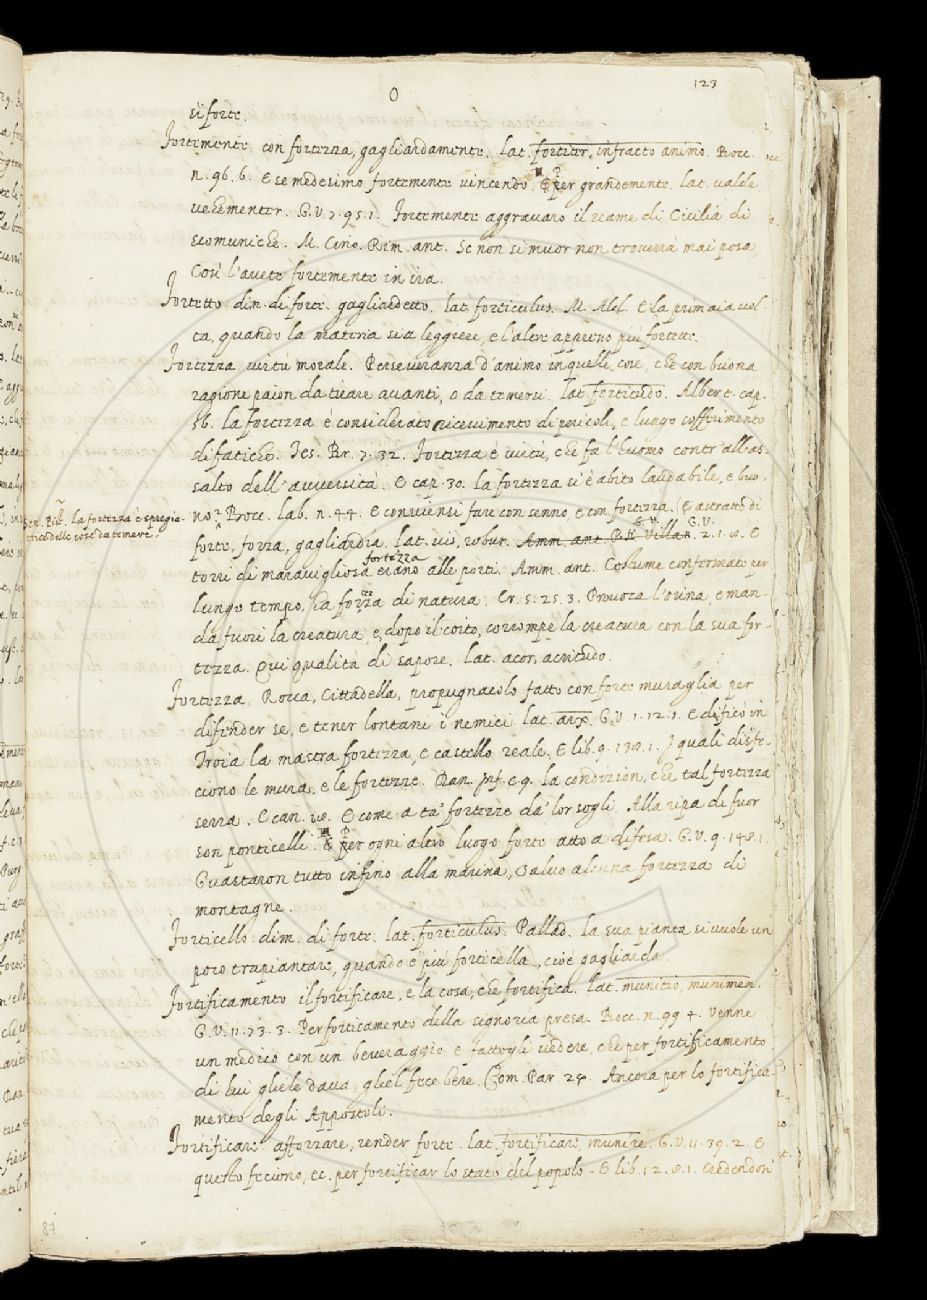 O
123
sì forte.
Fortemente con fortezza, gagliardamente. lat. fortiter, infracto animo. Bocc.
n. 96. 6. E se medesimo fortemente vincendo. ¶ Per grandemente. lat. valde,
vehementer. G.V. 7. 95. 1. Fortemente aggravaro il reame di Cicilia di
scomuniche. M. Cino. Rim. ant. Se non si muor non troverrà mai posa
Così l'avete fortemente in ira.
Fortetto dim. di forte. gagliardetto. lat. forticulus. M. Ald. E la primaia vol-
ta, quando la materia sia leggiere, e l'altre appieno più fortette.
Fortezza virtù morale. Perseveranza d'animo in quelle cose, che con buona
ragione paion da tirare avanti, o da temersi. lat. fortitudo. Albert. cap.
56. la fortezza è considerato ricevimento di pericoli, e lungo sofferimento
di fatiche. Tes. Br. 7. 32. Fortezza è virtù, che fa l'huomo contr' all'as-
salto dell' avversità. E cap. 30. la fortezza si è abito laudabile, e buo-
no. Bocc. Lab. n. 44. E conviensi fare con senno, e con fortezza. E astratto di
Sen. Pist. la fortezza è spregia-
trice delle cose da temere.
forte, forza, gagliardia. lat. vis, robur. Amm. ant. G.V. Villan. G.V. 2. 1. 8. E
torri di maravigliosa fortezza erano alle porti. Amm. ant. Costume confermato per
lungo tempo, ha forza di natura. Cr. 5. 25. 3. Provoca l'orina, e man-
da fuori la creatura, e, dopo il coito, corrompe la creatura con la sua for-
tezza. Qui qualità di sapore. lat. acor, acritudo.
Fortezza Rocca, Cittadella, propugnacolo fatto con forte muraglia per
difender se, e tener lontani i nemici. lat. arx. G.V. 1. 12. 1. E dificò in
Troia la mastra fortezza, e castello reale. E lib. 9. 138. 1. I quali disfe-
ciono le mura, e le fortezze. Dan. Inf. c. 9. la condizion, che tal fortezza
serra. E can. 18. E come a ta' fortezze da' lor sogli Alla ripa di fuor
son ponticelli. ¶ Per ogni altro luogo forte atto a difesa. G.V. 9. 148. 1.
Guastaron tutto infino alla marina, salvo alcuna fortezza di
montagne.
Forticello dim. di forte. lat. forticulus. Pallad. la sua pianta si vuole un
poco trapiantare, quando è più forticella, cioè gagliarda.
Fortificamento il fortificare, e la cosa, che fortifica. lat. munitio, munimen.
G.V. 11. 73. 3. Per forticamento della signoria presa. Bocc. n. 99. 4. Venne
un medico con un beveraggio, e fattogli vedere, che per fortificamento
di lui gliele dava, gliel fece bere. Com. Par. 24. Ancora per lo fortifica-
mento degli Appostoli.
Fortificare afforzare, render forte. lat. fortificare, munire. G.V. 11. 39. 2. E
questo feciono, ec. per fortificar lo stato del popolo. E lib. 12. 8. 1. Credendosi
87